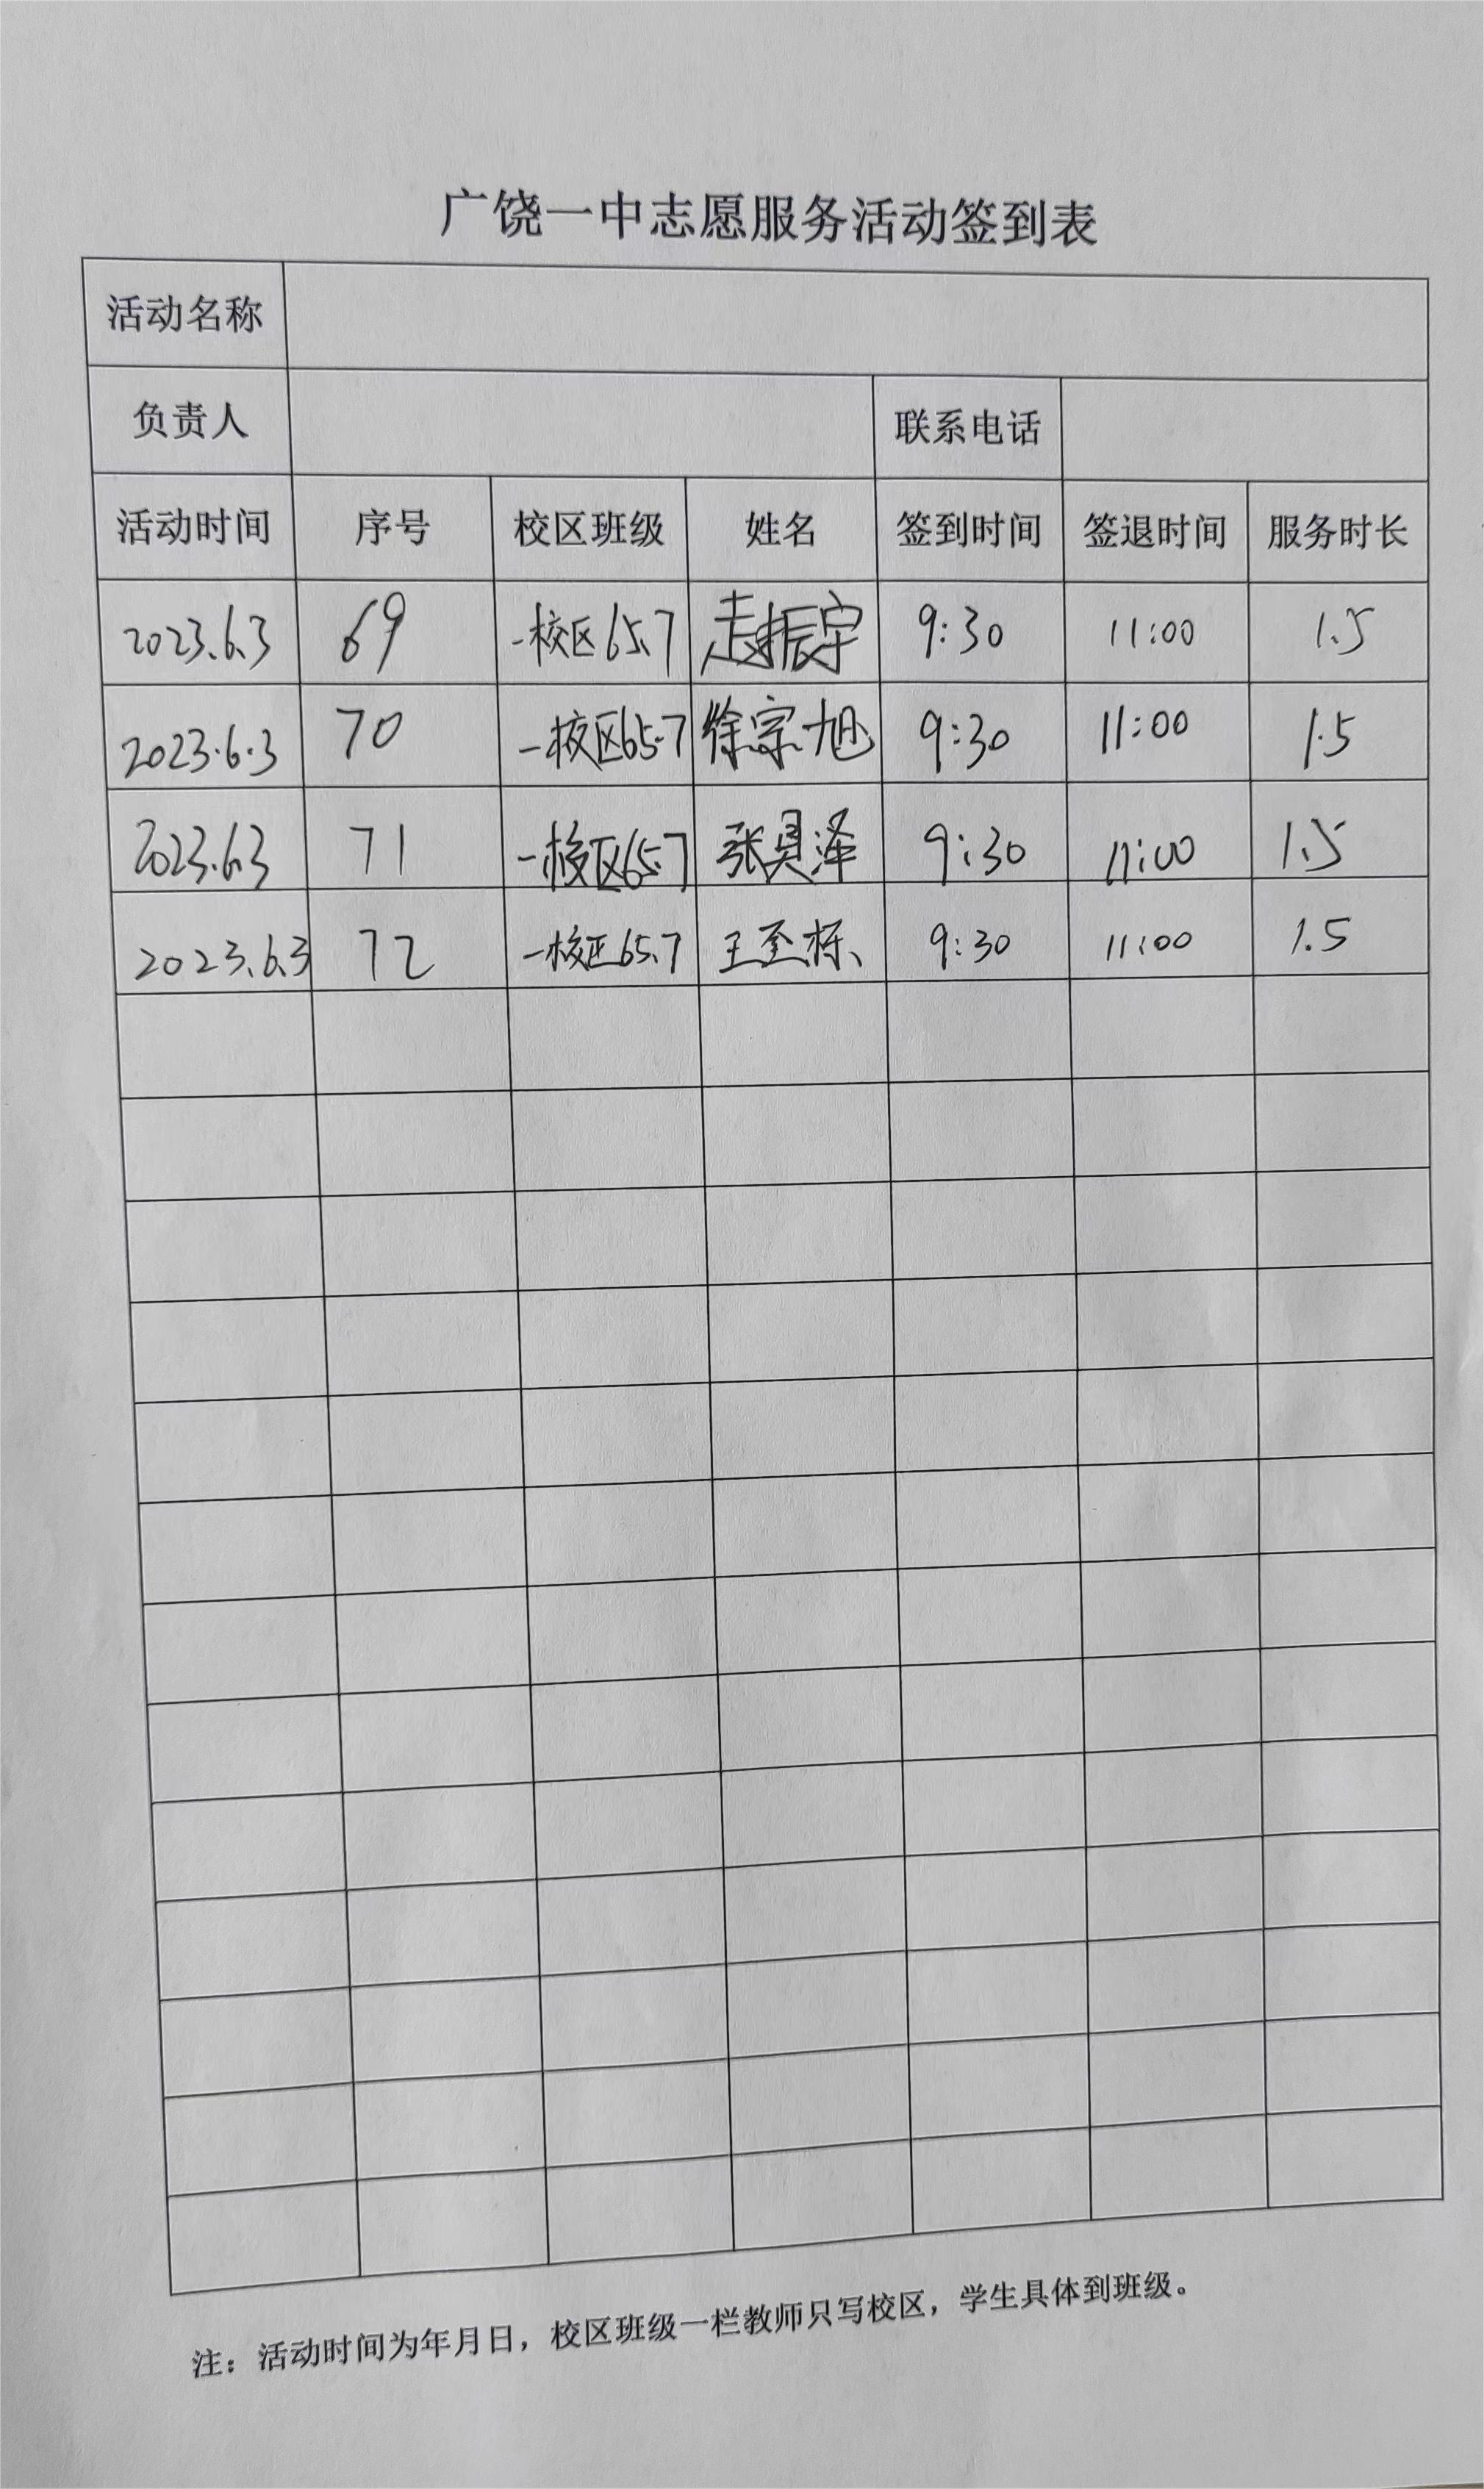 广饶一中志愿服务活动签到表
活动名称
负责人 联系电话
活动时间 序号 校区班级 姓名 签到时间 签退时间 服务时长
2023.6.3 69 一校区65.7 振宇 9:30 11:00 1.5
2023.6.3 70 一校区65.7 徐宗旭 9:30 11:00 1.5
2023.6.3 71 一校区65.7 张昊泽 9:30 11:00 1.5
2023.6.3 72 一校区65.7 王至栋 9:30 11:00 1.5
注：活动时间为年月日，校区班级一栏教师只写校区，学生具体到班级。